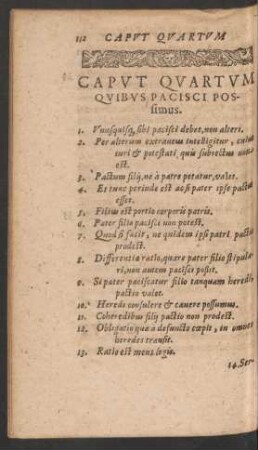 152 CAPVT QVARTVM
CAPVT QVARTVM
QVIBVS PACISCI POS-
simus.
1. Vnusquisq, sibi pacisci debet, non alteri.
2. Per alterum extraneus intelligitur, cuius
iuri & potestati, quis subiectus non
est.
3. Pactum filij, ne à patre petatur, valet.
4. Et tunc perinde est ac si pater ipse pactus
esset.
5. Filius est portio corporis patris.
6. Pater filio pacisci non potest.
7. Quod si facit, ne quidem ipsi patri pactio
prodest.
8. Differentiæ ratio, quare pater filio stipula-
ri, non autem pacisci possit.
9. Si pater paciscatur filio tanquam heredi,
pactio valet.
10. Heredi consulere & cauere possumus.
11. Coheredibus filij pactio non prodest.
12. Obligatio quæ à defuncto cœpit, in omnes
heredes transit.
13. Ratio est mens legis.
14. Ser-